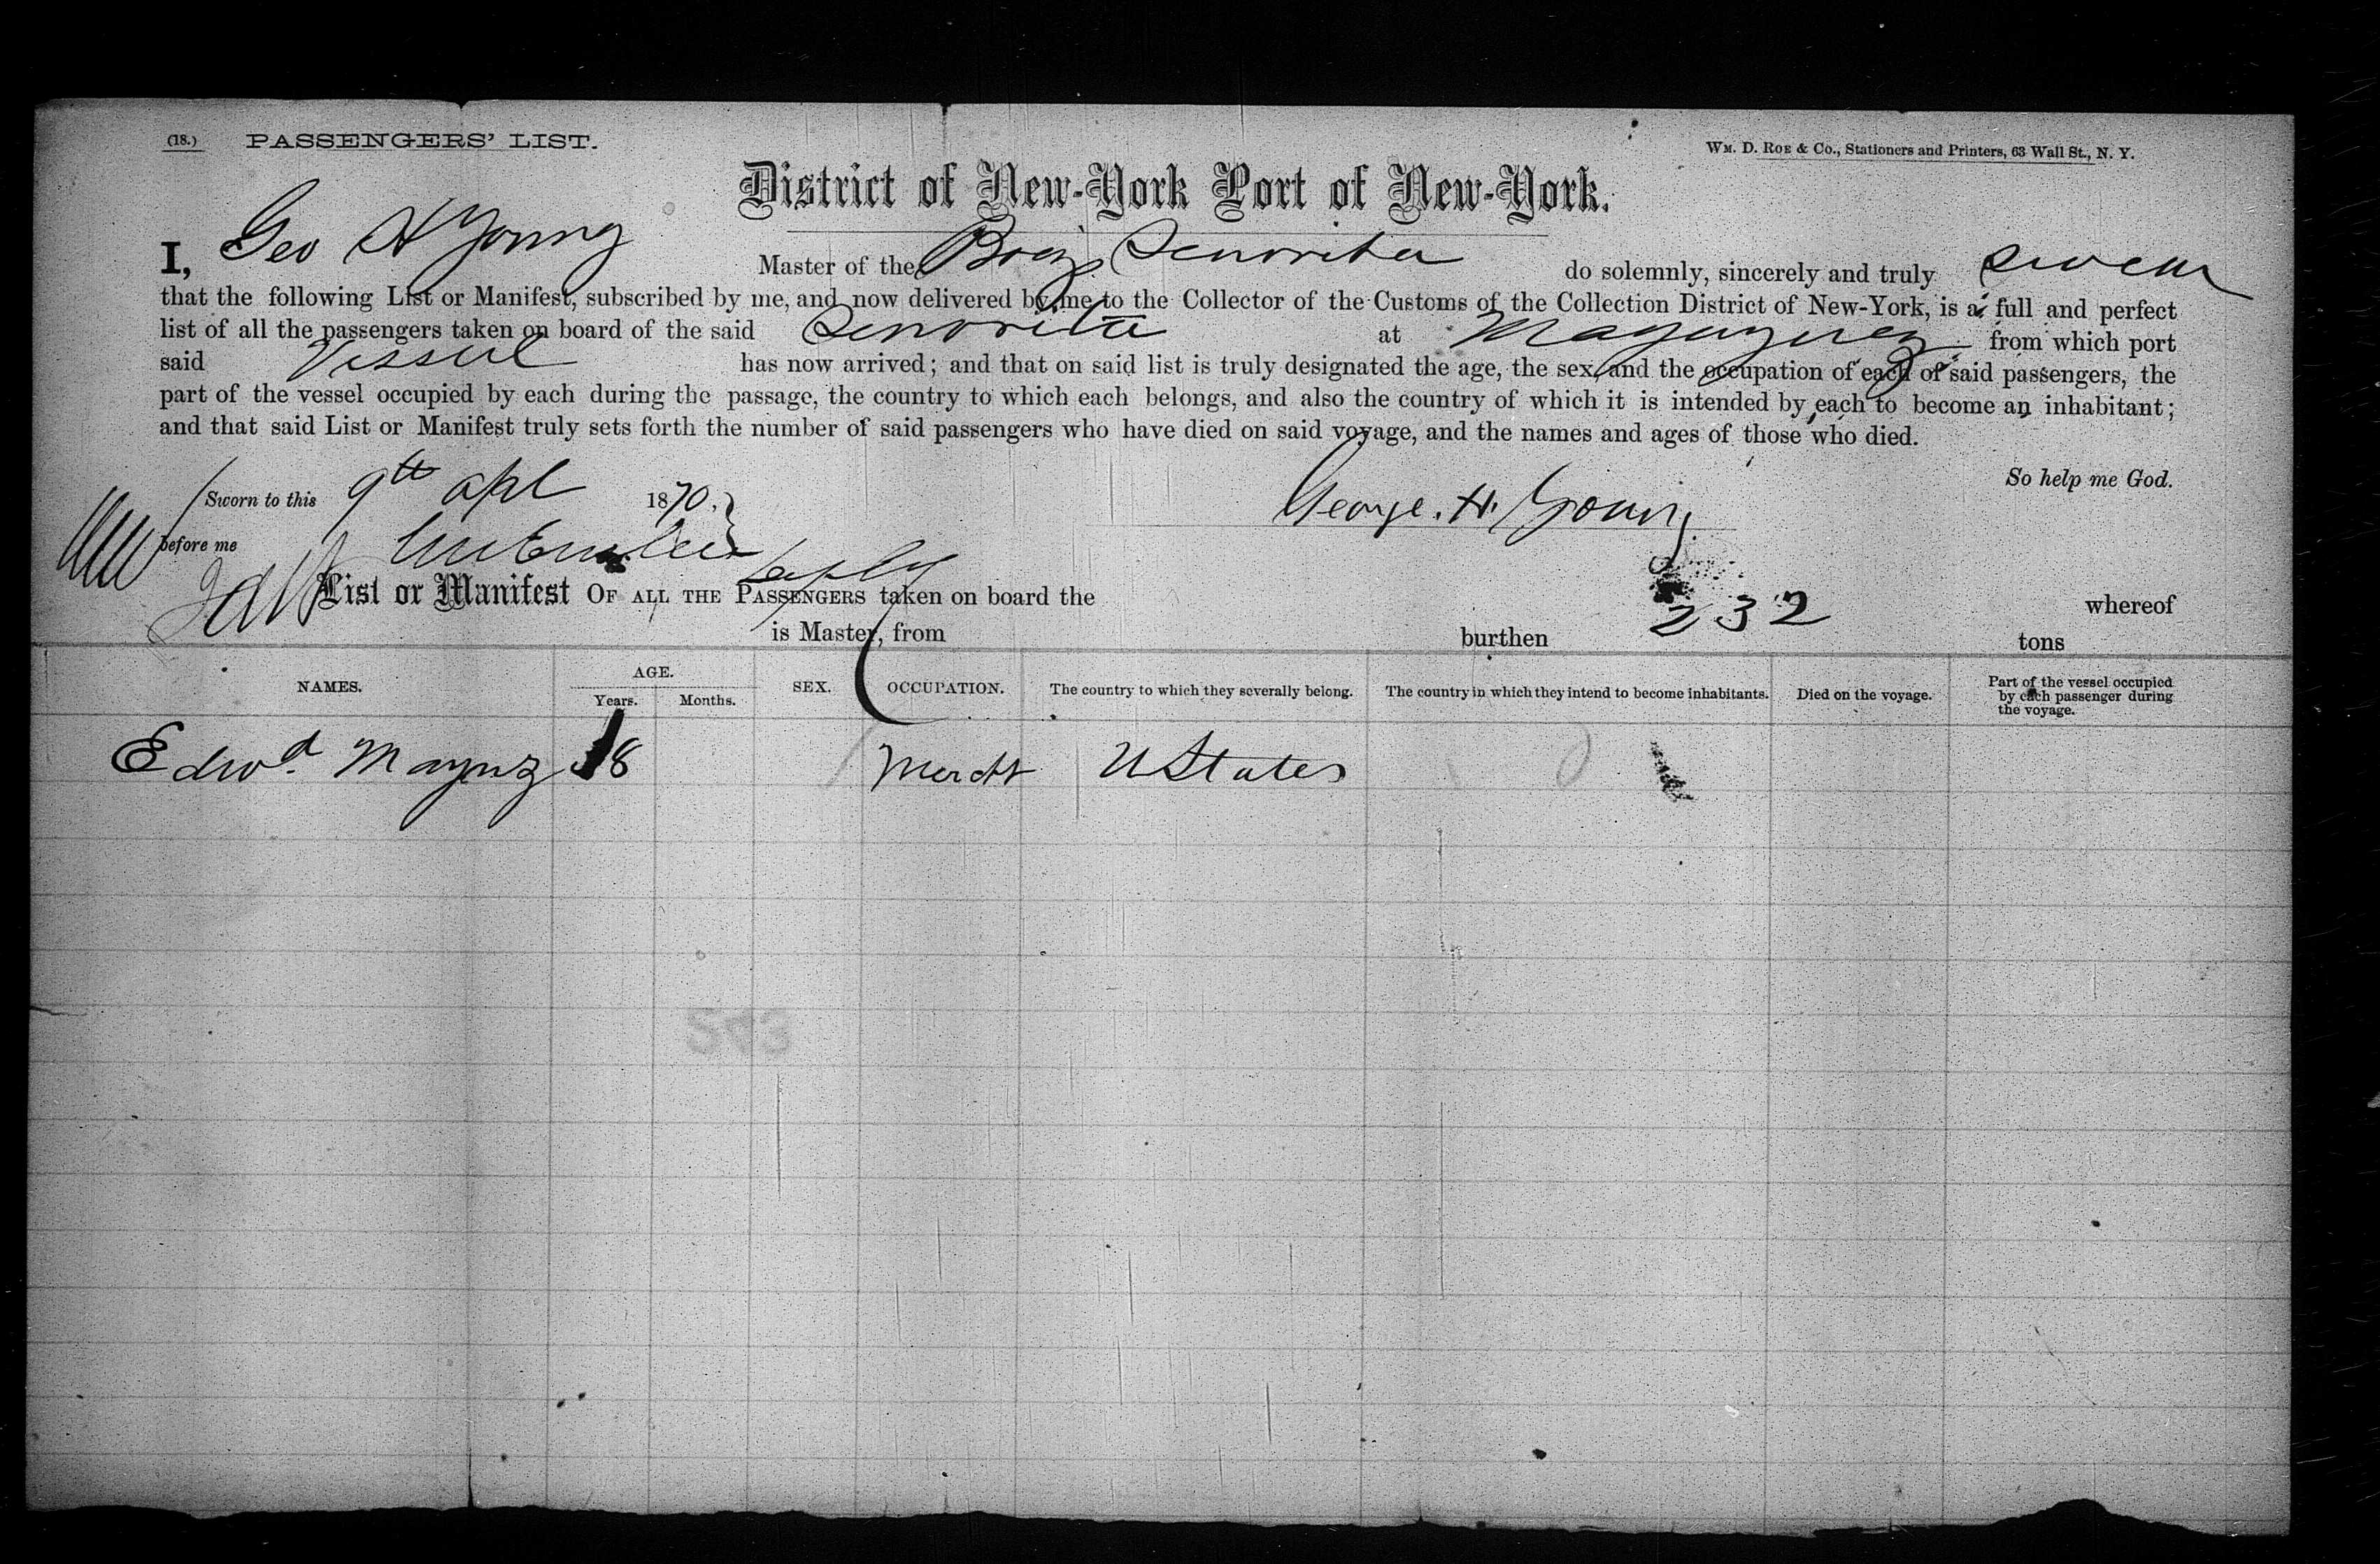 (18.) PASSENGERS' LIST.
WM. D. ROE & Co., Stationers and Printers, 63 Wall St., N. Y.
District of New-York Port of New-York.
I, Geo H Young Master of the Brig Senorita do solemnly, sincerely and truly swear
that the following List or Manifest, subscribed by me, and now delivered by me to the Collector of the Customs of the Collection District of New-York, is a full and perfect
list of all the passengers taken on board of the said Senorita at Mayaguez from which port
said Vessel has now arrived; and that on said list is truly designated the age, the sex, and the occupation of each of said passengers, the
part of the vessel occupied by each during the passage, the country to which each belongs, and also the country of which it is intended by each to become an inhabitant;
and that said List or Manifest truly sets forth the number of said passengers who have died on said voyage, and the names and ages of those who died.
So help me God.
Sworn to this 9th Apl 1870,
George. H. Young
before me
List or Manifest OF ALL THE PASSENGERS taken on board the whereof
is Master, from burthen 232 tons
NAMES. AGE. SEX. OCCUPATION. The country to which they severally belong. The country in which they intend to become inhabitants. Died on the voyage. Part of the vessel occupied by each passenger during the voyage.
Years. Months.
Edwd. 18 Mercht UStates